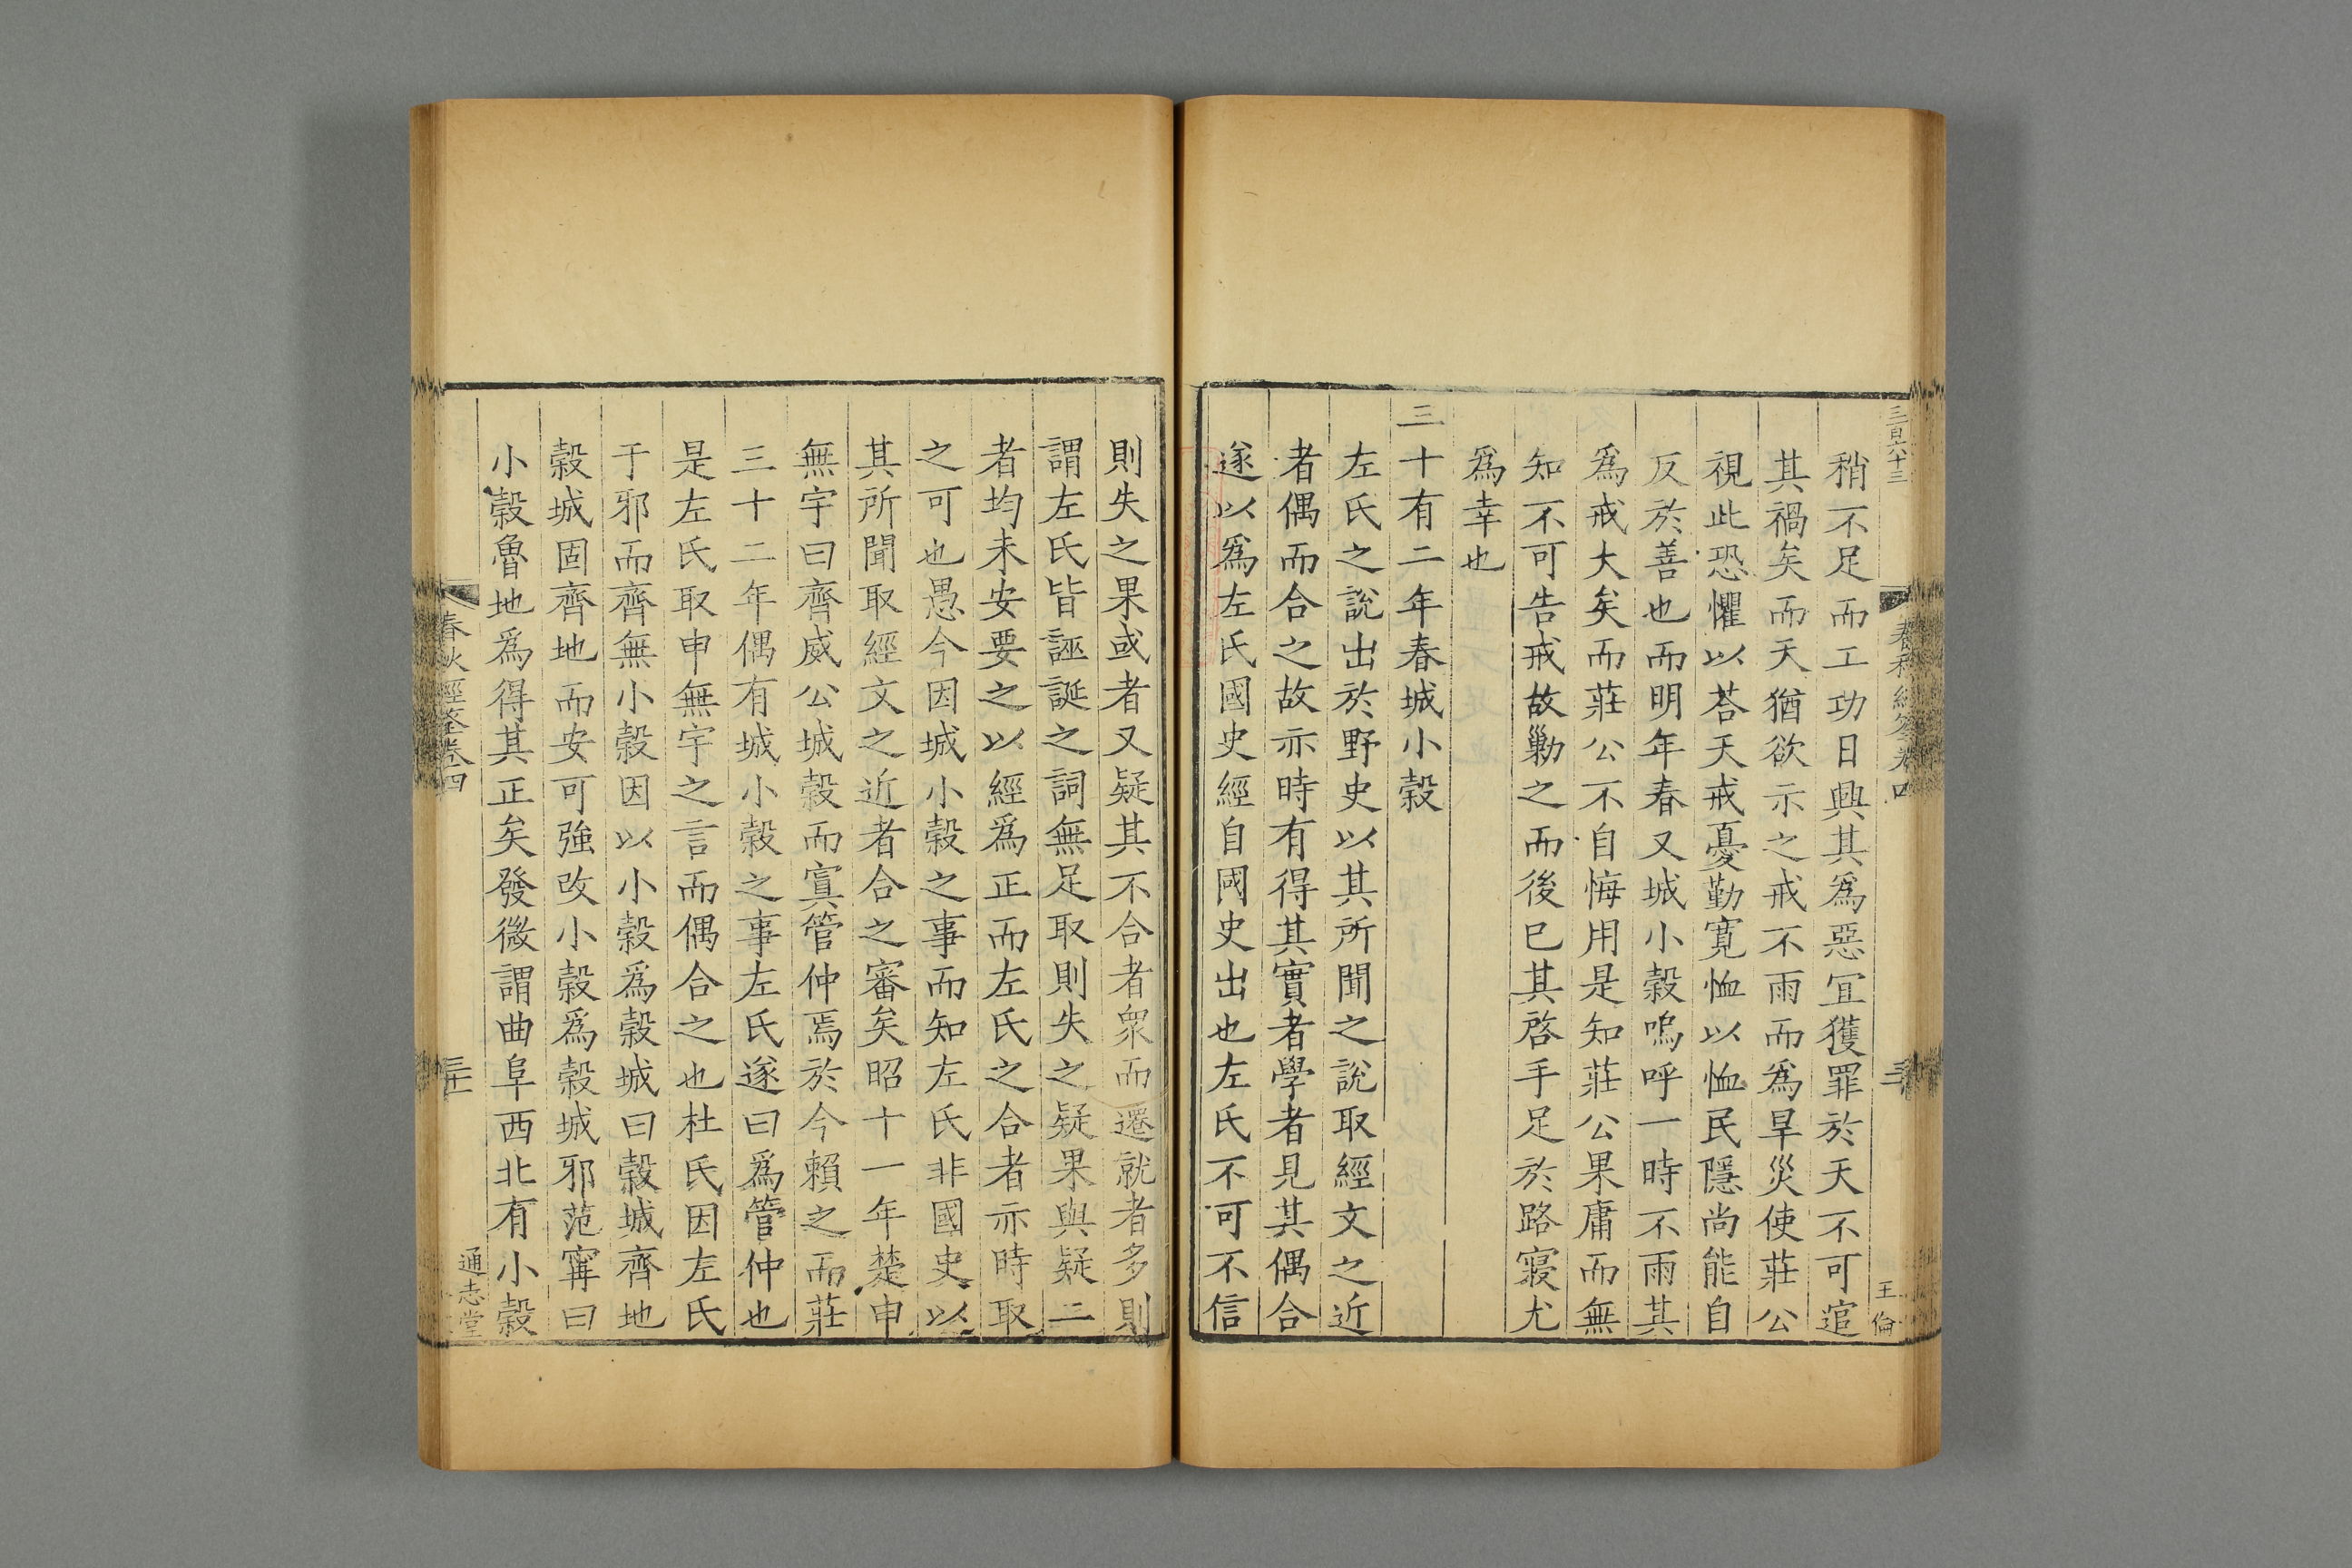 三百六十三
春秋經筌卷四
三十
王倫
稍不足而工功日興其爲惡冝獲罪於天不可逭
其禍矣而天猶欲示之戒不雨而爲旱災使莊公
視此恐懼以荅天戒憂勤寛恤以恤民隱尚能自
反於善也而明年春又城小榖嗚呼一時不雨其
爲戒大矣而莊公不自悔用是知莊公果庸而無
知不可告戒故勦之而後巳其啓手足於路寢尤
爲幸也
三十有二年春城小榖
左氏之說出於野史以其所聞之說取經文之近
者偶而合之故亦時有得其實者學者見其偶合
遂以爲左氏國史經自國史出也左氏不可不信
則失之果或者又疑其不合者衆而遷就者多則
謂左氏皆誣誕之詞無足取則失之疑果與疑二
者均未安要之以經爲正而左氏之合者亦時取
之可也愚今因城小榖之事而知左氏非國史以
其所聞取經文之近者合之審矣昭十一年楚申
無宇曰齊威公城榖而寘管仲焉於今賴之而莊
三十二年偶有城小榖之事左氏遂曰爲管仲也
是左氏取申無宇之言而偶合之也杜氏因左氏
于邪而齊無小榖因以小榖爲榖城曰榖城齊地
榖城固齊地而安可強改小榖爲榖城邪范寗曰
小榖魯地爲得其正矣發微謂曲阜西北有小榖
春秋經筌卷四
三十一
通志堂